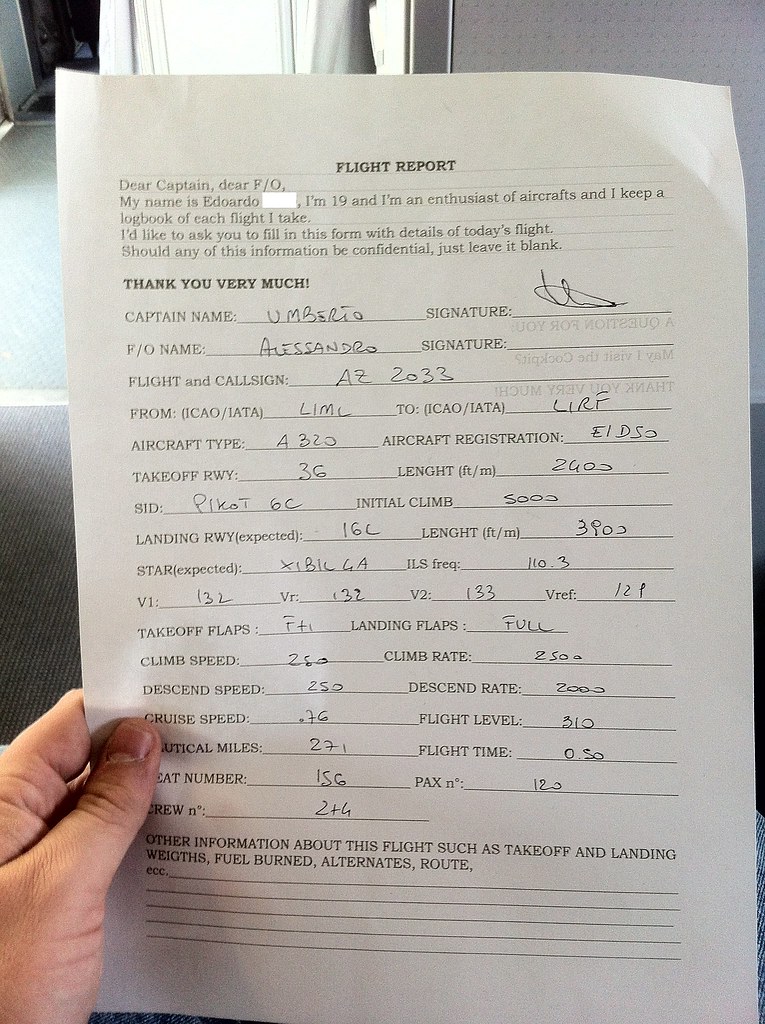 FLIGHT REPORT
Dear Captain, dear F/O,
My name is Edoardo , I'm 19 and I'm an enthusiast of aircrafts and I keep a
logbook of each flight I take.
I'd like to ask you to fill in this form with details of today's flight.
Should any of this information be confidential, just leave it blank.
THANK YOU VERY MUCH!
CAPTAIN NAME: UMBERTO SIGNATURE:
A QUESTION FOR YOU:
F/O NAME: ALESSANDRO SIGNATURE:
May I visit the Cockpit?
FLIGHT and CALLSIGN: AZ 2033
THANK YOU VERY MUCH!
FROM: (ICAO/IATA) LIML TO: (ICAO/IATA) LIRF
AIRCRAFT TYPE: A 320 AIRCRAFT REGISTRATION: EIDSO
TAKEOFF RWY: 36 LENGHT (ft/m) 2400
SID: PIKOT 6C INITIAL CLIMB 5000
LANDING RWY(expected): 16L LENGHT (ft/m) 3900
STAR(expected): XIBIL 4A ILS freq: 110.3
V1: 132 Vr: 132 V2: 133 Vref:
TAKEOFF FLAPS : F+1 LANDING FLAPS : FULL
CLIMB SPEED: 250 CLIMB RATE: 2500
DESCEND SPEED: 250 DESCEND RATE: 2000
CRUISE SPEED: .76 FLIGHT LEVEL: 310
UTICAL MILES: 271 FLIGHT TIME: 0.50
EAT NUMBER: 156 PAX n°: 120
CREW n°: 2+4
OTHER INFORMATION ABOUT THIS FLIGHT SUCH AS TAKEOFF AND LANDING
WEIGTHS, FUEL BURNED, ALTERNATES, ROUTE,
ecc.